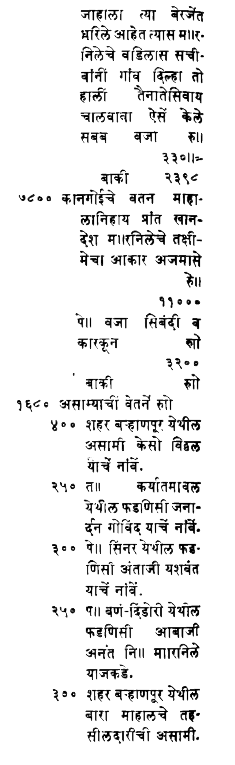 जाहाला त्या बेरजेंत
धरिले आहेत त्यास मा।।र-
निलेचे वडिलास सची-
वांनीं गांव दिल्हा तो
हालीं तैनातेसिवाय
चालवावा ऐसें केले
सबब वजा रु।।
३३०।।=
बाकी २३९८
७८०० कानगोईचे वतन माहा-
लानिहाय प्रांत खान-
देश मा।।रनिलेचे तक्षी-
मेचा आकार अजमासे
रु।।
११०००
पे।। वजा सिबंदी व
कारकून रु।।
३२००
बाकी रु।।
१६८० असाम्याचीं वेतनें रु।।
४०० शहर बऱ्हाणपूर येथील
असामी केसो विठ्ठल
याचें नांवें.
२५० त।। कर्यातमावल
येथील फडणिसी जना-
र्दन गोविंद याचें नांवें.
३०० पे।। सिंनर येथील फड-
णिसी अंताजी यशवंत
याचें नांवें.
२५० प।। वणं-दिंडोरी येथील
फडणिसी आबाजी
अनंत नि।। मा।।रनिले
याजकडे.
३०० शहर बऱ्हाणपूर येथील
बारा माहालचे तह-
सीलदारींची असामी.